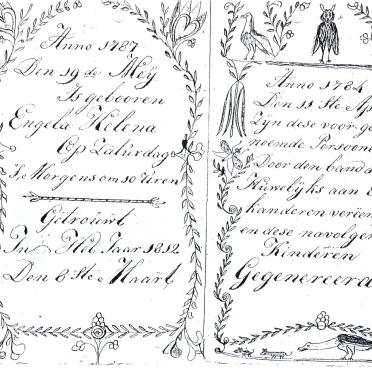 Anno 1787
Den 19 de Meÿ
Is gebooren
Engela Helena
Op Zaturdag
Is Morgens om 10 Uren
Getrouwt
In Het Jaar 1812
Den 8 Ste Maart
Anno 1784
Den 11 Ste Ap
Zÿn dese voor ge
noemde Persoone
Door den band d
Huwelÿks aan E
kanderen vereen
en dese navolgen
Kinderen
Gegenereerd